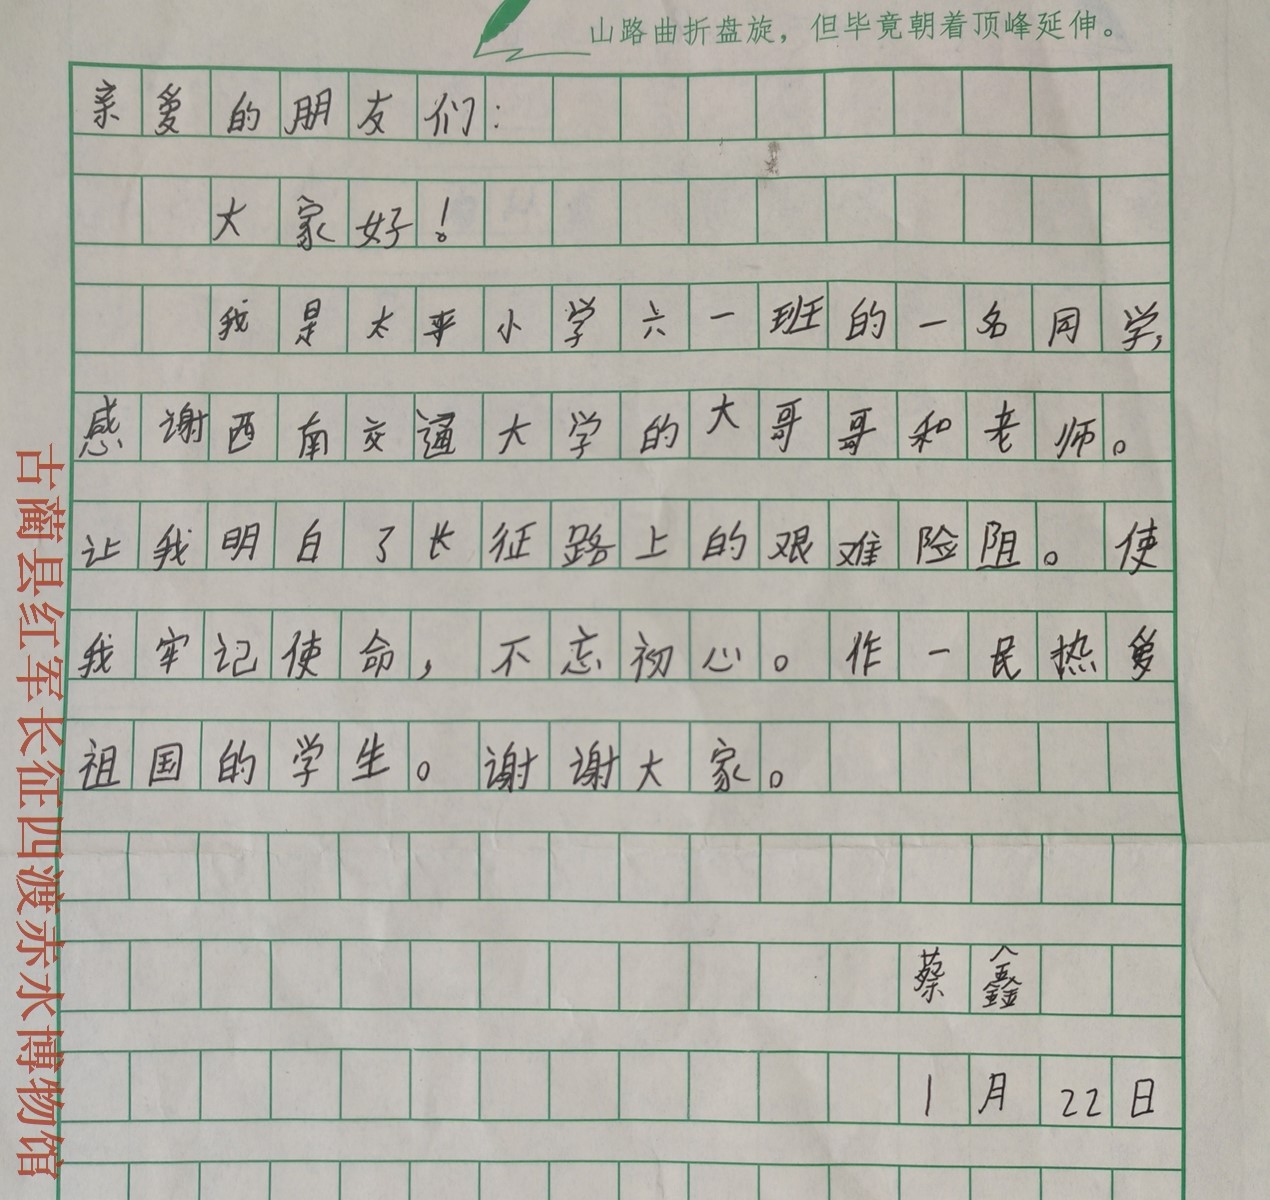 山路曲折盘旋，但毕竟朝着顶峰延伸。
亲爱的朋友们：
大家好！
我是太平小学六一班的一名同学，
感谢西南交通大学的大哥哥和老师。
让我明白了长征路上的艰难险阻。使
我牢记使命，不忘初心。作一民热爱
祖国的学生。谢谢大家。
蔡鑫
1月22日
古蔺县红军长征四渡赤水博物馆